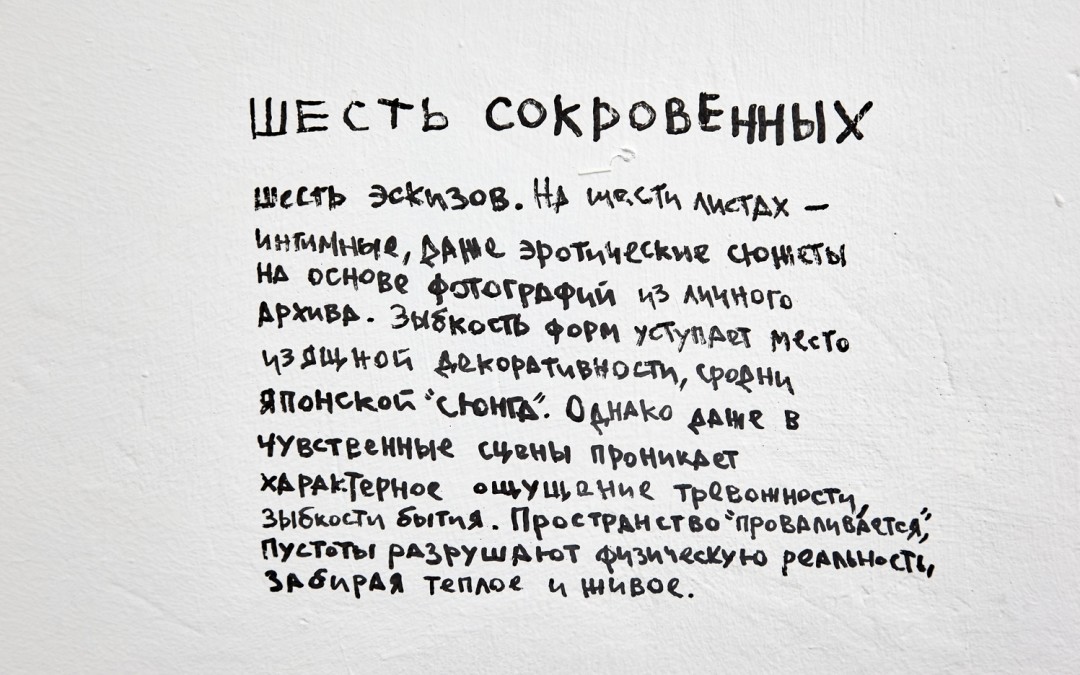 ШЕСТЬ СОКРОВЕННЫХ
Шесть эскизов. На шести листах –
интимные, даже эротические сюжеты
на основе фотографий из личного
архива. Зыбкость форм уступает место
изящной декоративности, сродни
японской "сюнга". Однако даже в
чувственные сцены проникает
характерное ощущение тревожности,
зыбкости бытия. Пространство "проваливается",
пустоты разрушают физическую реальность,
забирая теплое и живое.